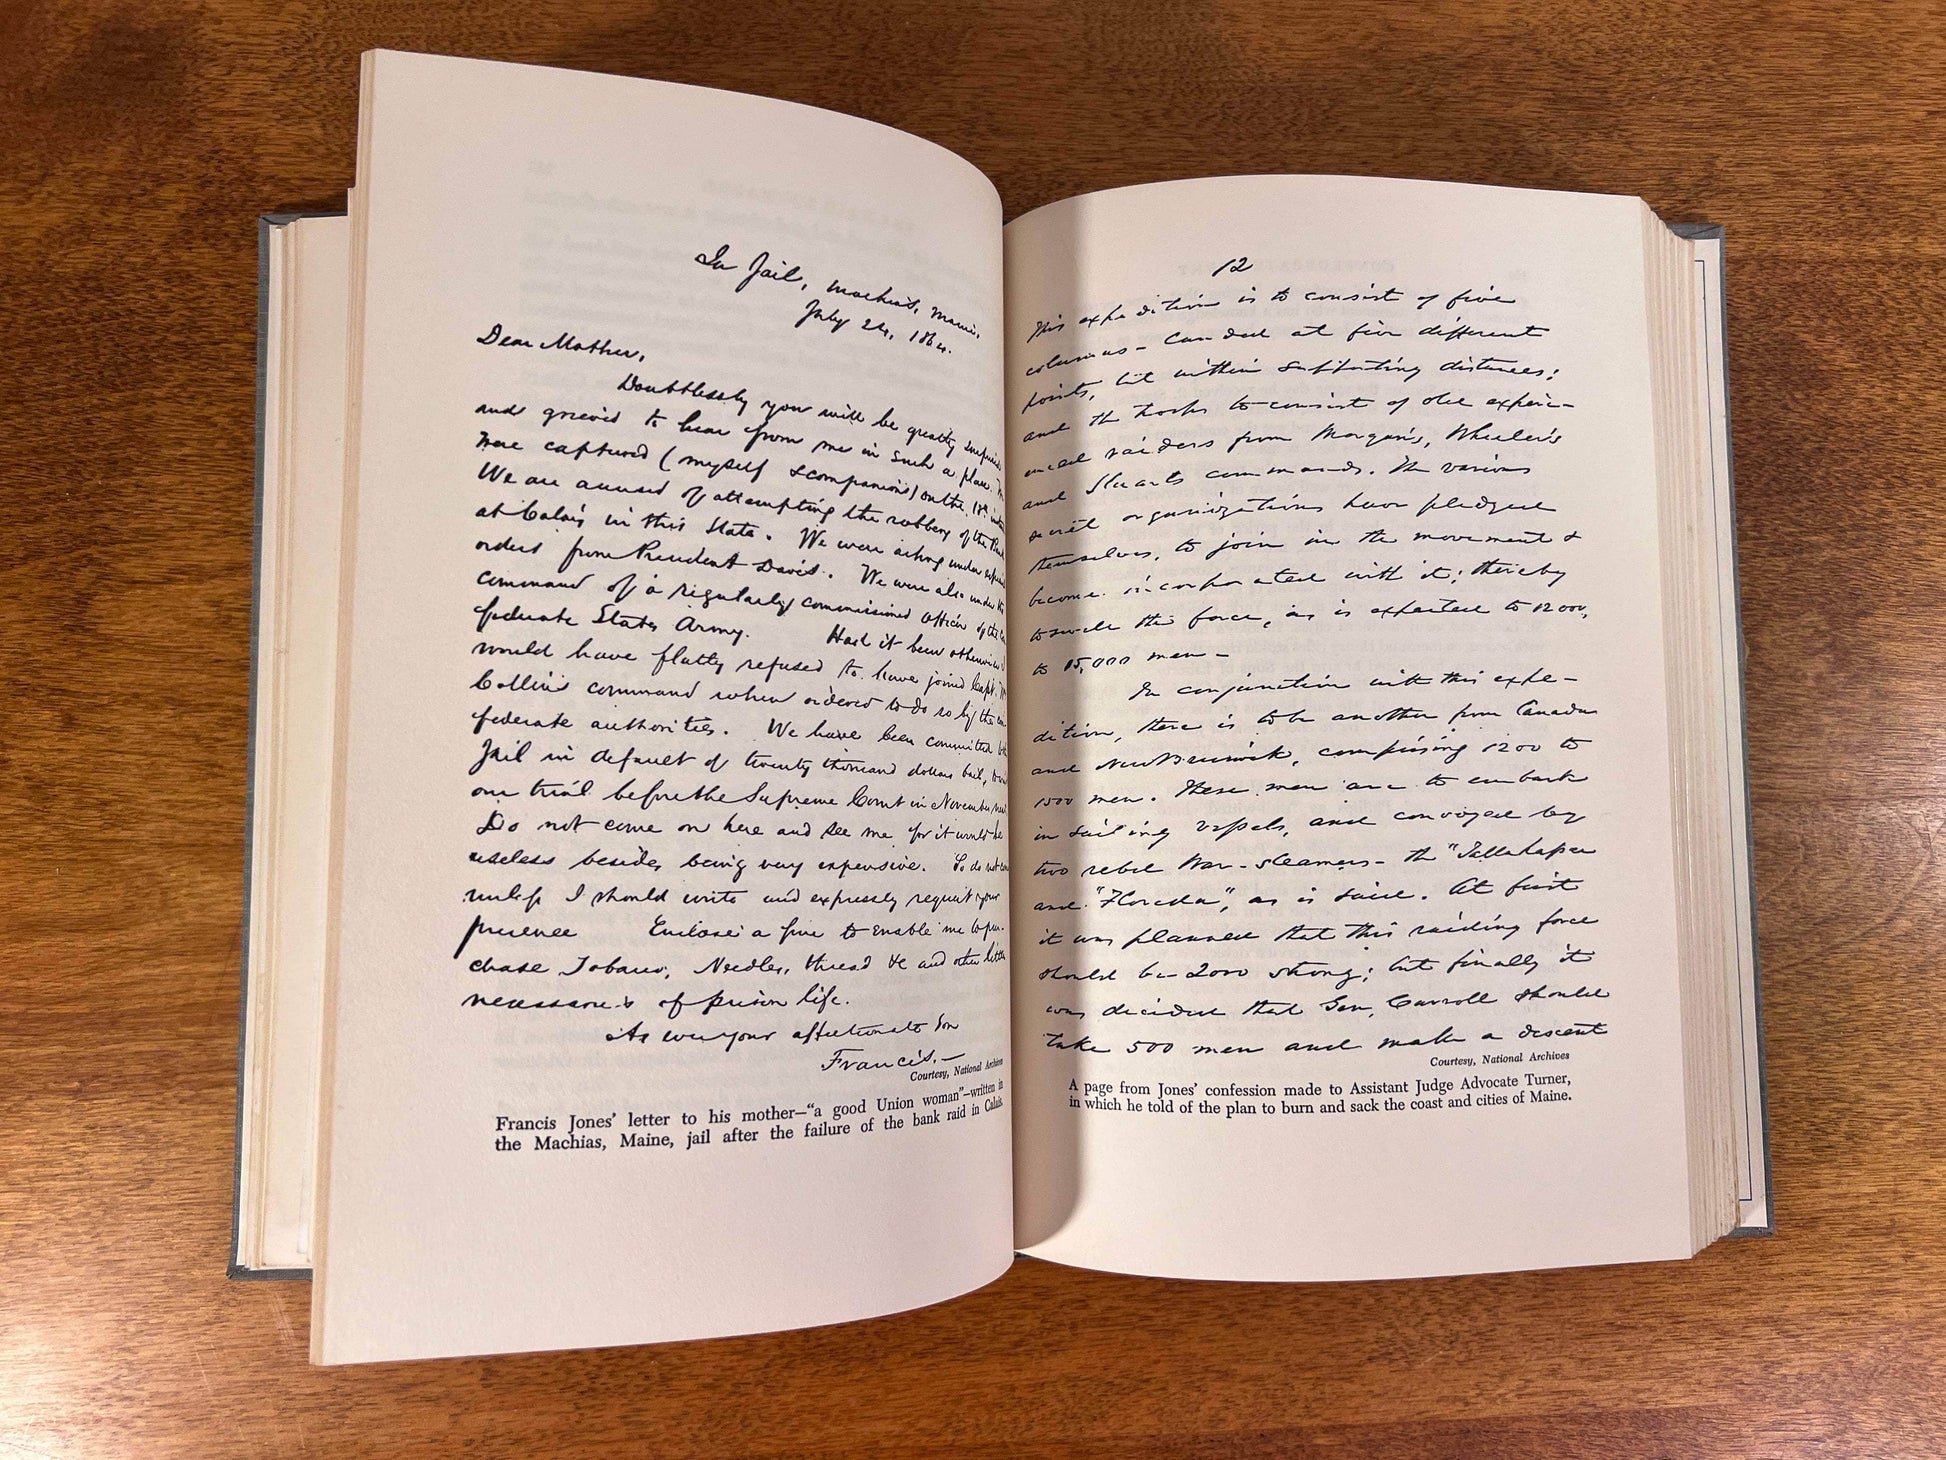 In Jail, Machias, Maine,
July 24, 1864.
Dear Mother,
Doubtlessly you will be greatly surprised
and grieved to hear from me in such a place. We
were captured (myself & companions) on the 18th
We are accused of attempting the robbery of the Bank
at Calais in this State. We were acting under
orders from President Davis. We were also under the
command of a regularly commissioned officer of the Con
federate States Army. Had it been otherwise I
would have flatly refused to have joined Capt.
Collins command when ordered to do so by the con-
federate authorities. We have been committed to
Jail in default of twenty thousand dollars bail, to
our trial before the Supreme Court in November
Do not come on here and see me for it would be
useless besides being very expensive. So do not come
unless I should write and expressly request your
presence Enclose a five to enable me to pur-
chase Tobacco, Needles, thread &c and other little
necessaries of prison life.
As ever your affectionate Son
Francis.—
Courtesy, National Archives
Francis Jones' letter to his mother—"a good Union woman"—written in
the Machias, Maine, jail after the failure of the bank raid in Calais.
12
This expedition is to consist of five
columns - landed at five different
points, but within supporting distances;
and the troops to consist of old exper-
ienced raiders from Morgan's, Wheeler's
and Stuarts commands. The various
secret organizations have pledged
themselves, to join in the movement &
become incorporated with it; thereby
to swell the force, as is expected to 12000,
to 15,000 men -
In conjunction with this expe-
dition, there is to be another from Canada
and New Brunswick, comprising 1200 to
1500 men. These men are to embark
in sailing vessels, and convoyed by
two rebel War-steamers - the "Tallahassee
and "Florida", as is said. At first
it was planned that this raiding force
should be 2000 strong; but finally it
was decided that Gen. Carroll should
take 500 men and make a descent
Courtesy, National Archives
A page from Jones' confession made to Assistant Judge Advocate Turner,
in which he told of the plan to burn and sack the coast and cities of Maine.